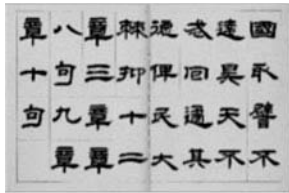 國取譬不
遠昊天不
忒回遹其
德俾民大
棘抑十二
章三章章
八句九章
章十句